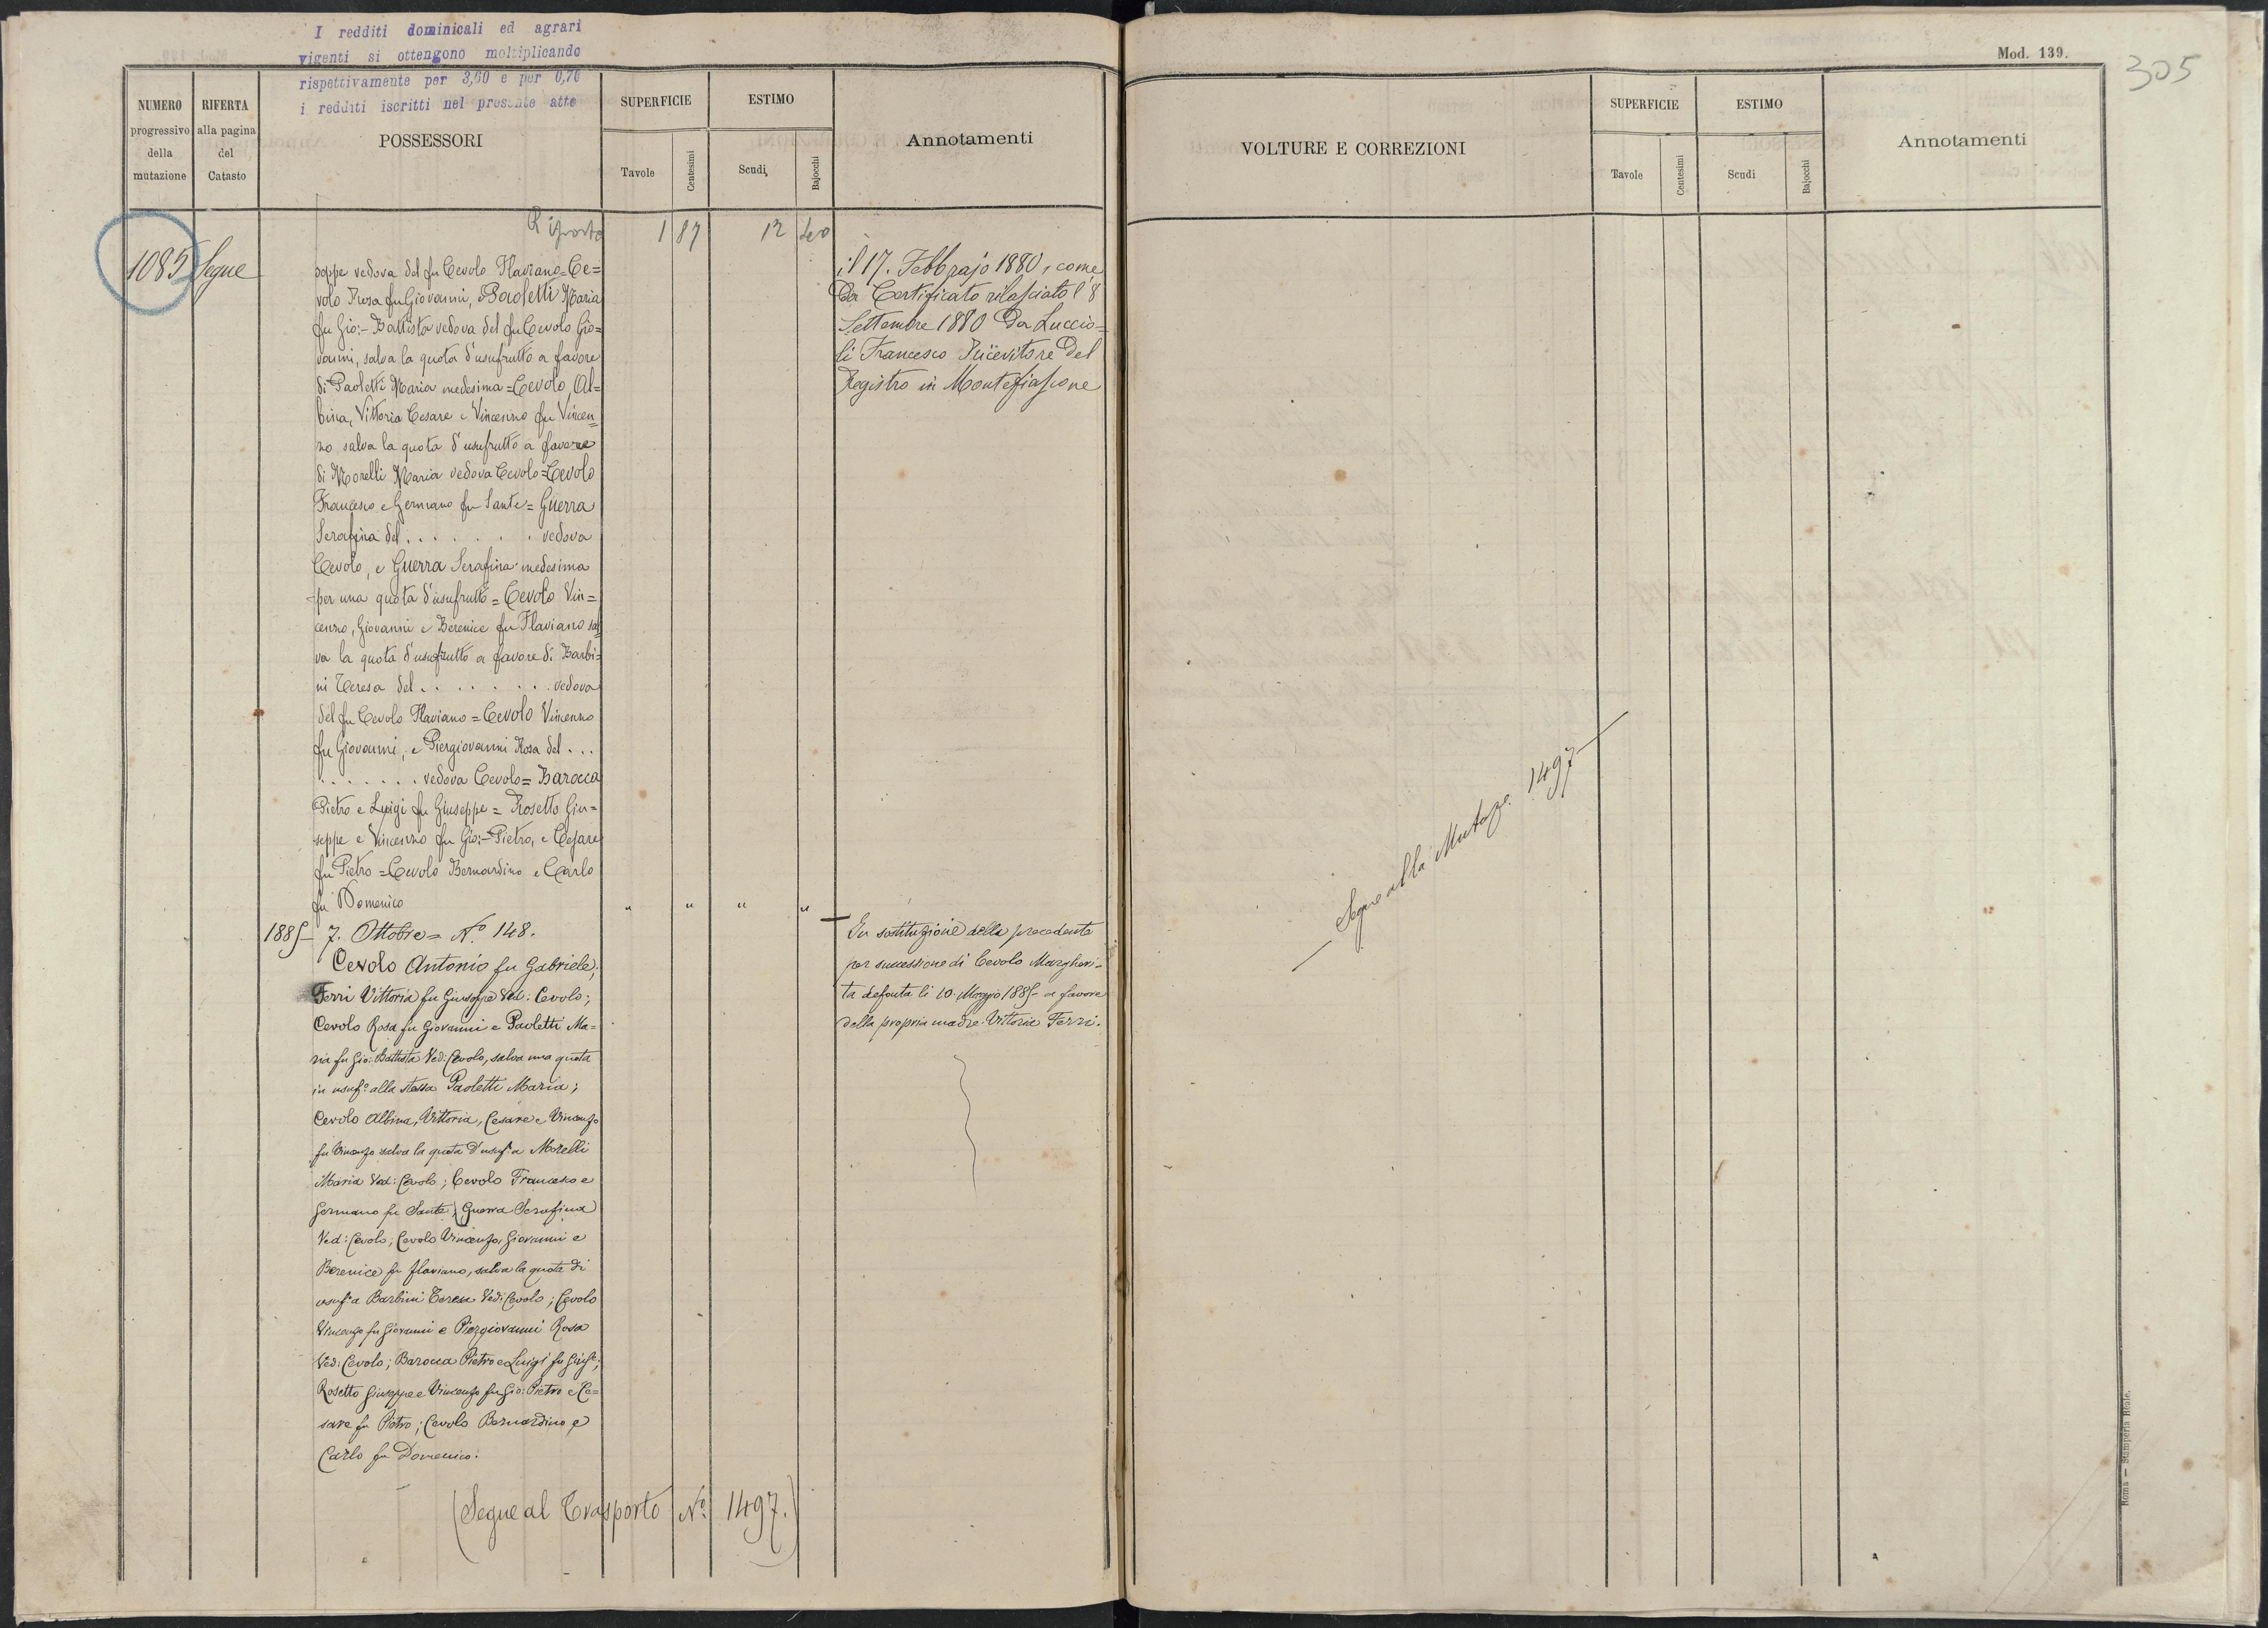 I redditi dominicali ed agrari
vigenti si ottengono moltiplicando
rispettivamente per 3,60 e per 0,70
i redditi iscritti nel presente atte
NUMERO
progressivo
della
mutazione
RIFERTA
alla pagina
del
Catasto
POSSESSORI
SUPERFICIE
Tavole
Centesimi
ESTIMO
Scudi
Bajocchi
Annotamenti
Riporto 1 87 12
1085 Segue
seppe vedova del fu Cevolo Flaviano = Ce=
volo Rosa fu Giovanni, e Paoletti Maria
fu Gio:- Battista vedova del fu Cevolo Gio=
vanni, salva la quota d'usufrutto a favore
di Paoletti Maria medesima = Cevolo Al=
bina, Vittoria Cesare e Vincenzo fu Vincen=
zo salva la quota d'usufrutto a favore
di Morelli Maria vedova Cevolo = Cevolo
Francesco e Germano fu Sante = Guerra
Serafina del . . . . . . . vedova
Cevolo, e Guerra Serafina medesima
per una quota d'usufrutto = Cevolo Vin=
cenzo, Giovanni e Berenice fu Flaviano sal=
va la quota d'usufrutto a favore di Barbi=
ni Teresa del . . . . . . . vedova
del fu Cevolo Flaviano = Cevolo Vincenzo
fu Giovanni, e Piergiovanni Rosa del . . .
. . . . . . . vedova Cevolo = Barocca
Pietro e Luigi fu Giuseppe = Rosetto Giu=
seppe e Vincenzo fu Gio:- Pietro, e Cesare
fu Pietro = Cevolo Bernardino e Carlo
fu Domenico " " " "
il 17. Febbrajo 1880, come
da Certificato rilasciato l'8
Settembre 1880 da Luccio=
li Francesco Ricevitore del
Registro in Montefiascone
1885- 7. Ottobre = N.º 148.
Cevolo Antonio fu Gabriele;
Ferri Vittoria fu Giuseppe Ved: Cevolo;
Cevolo Rosa fu Giovanni e Paoletti Ma=
ria fu Gio: Battista Ved: Cevolo, salva una quota
in usuf.º alla stessa Paoletti Maria;
Cevolo Albina, Vittoria, Cesare e Vincenzo
fu Vincenzo salva la quota d'usuf. a Morelli
Maria Ved: Cevolo; Cevolo Francesco e
Germano fu Sante; Guerra Serafina
Ved: Cevolo; Cevolo Vincenzo, Giovanni e
Berenice fu Flaviano, salva la quota di
usuf. a Barbini Teresa Ved: Cevolo; Cevolo
Vincenzo fu Giovanni e Piergiovanni Rosa
Ved: Cevolo; Barocca Pietro e Luigi fu Gius.e;
Rosetto Giuseppe e Vincenzo fu Gio: Pietro e Ce=
sare fu Pietro; Cevolo Bernardino e
Carlo fu Domenico.
In sostituzione della precedente
per successione di Cevolo Margheri=
ta defonta li 10. Maggio 1885- a favore
della propria madre Vittoria Ferri.
(Segue al Trasporto N.º 1497.)
Mod. 139.
305
VOLTURE E CORREZIONI
SUPERFICIE
Tavole
Centesimi
ESTIMO
Scudi
Bajocchi
Annotamenti
Segue alla Mutaze. 1497
Roma — Stamperia Reale.